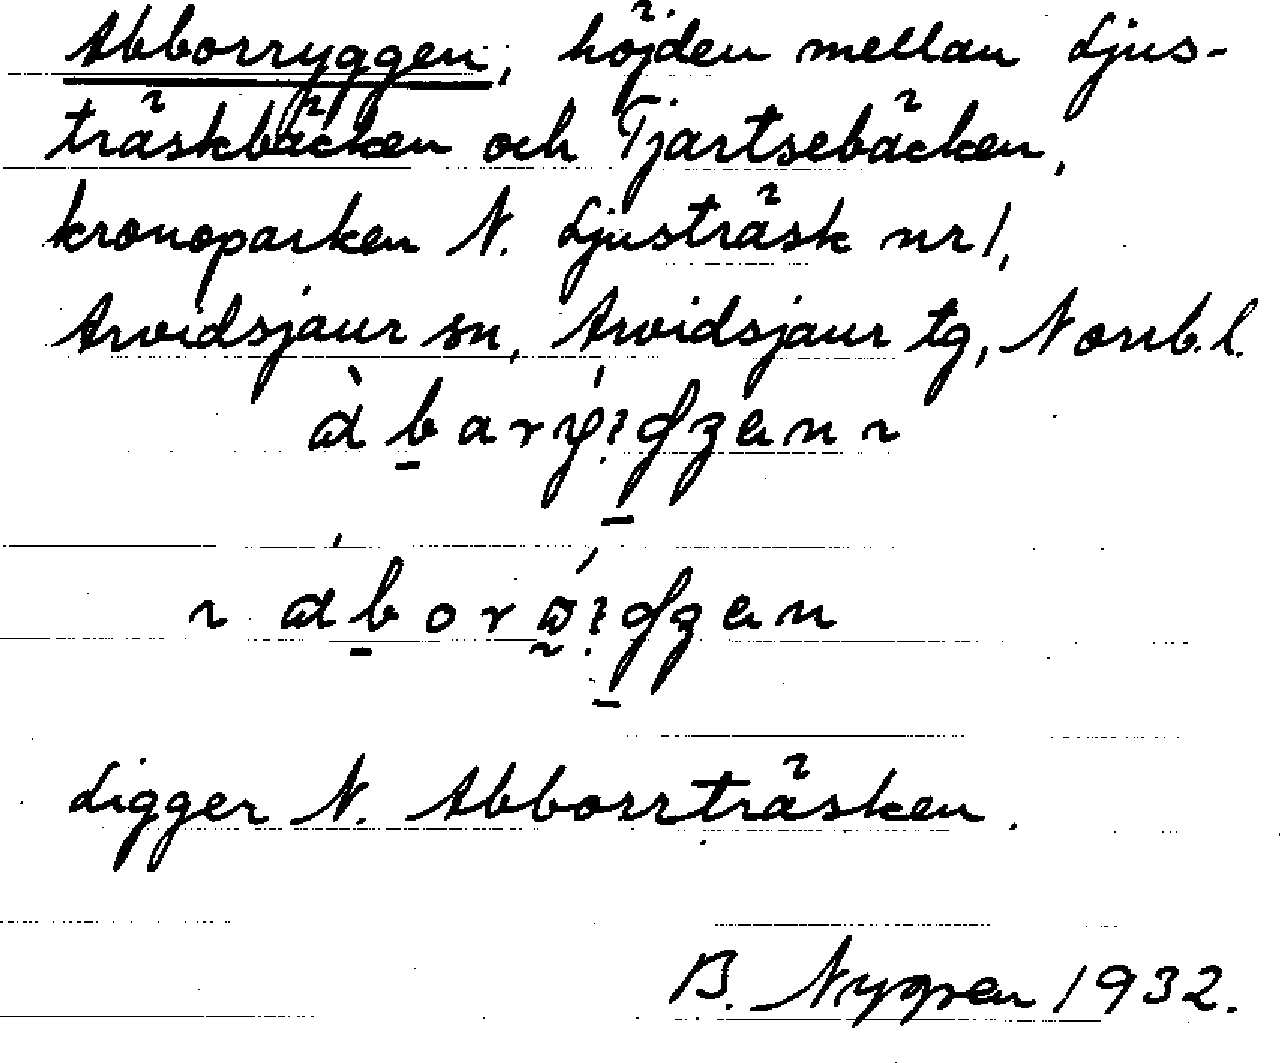 Abborryggen, höjden mellan Ljus-
träskbäcken och Tjartsebäcken,
kronoparken N. Ljusträsk nr 1,
Arvidsjaur sn, Arvidsjaur tg, Norrb. l.
Ligger N. Abborrträsken.
B. Nygren 1932.